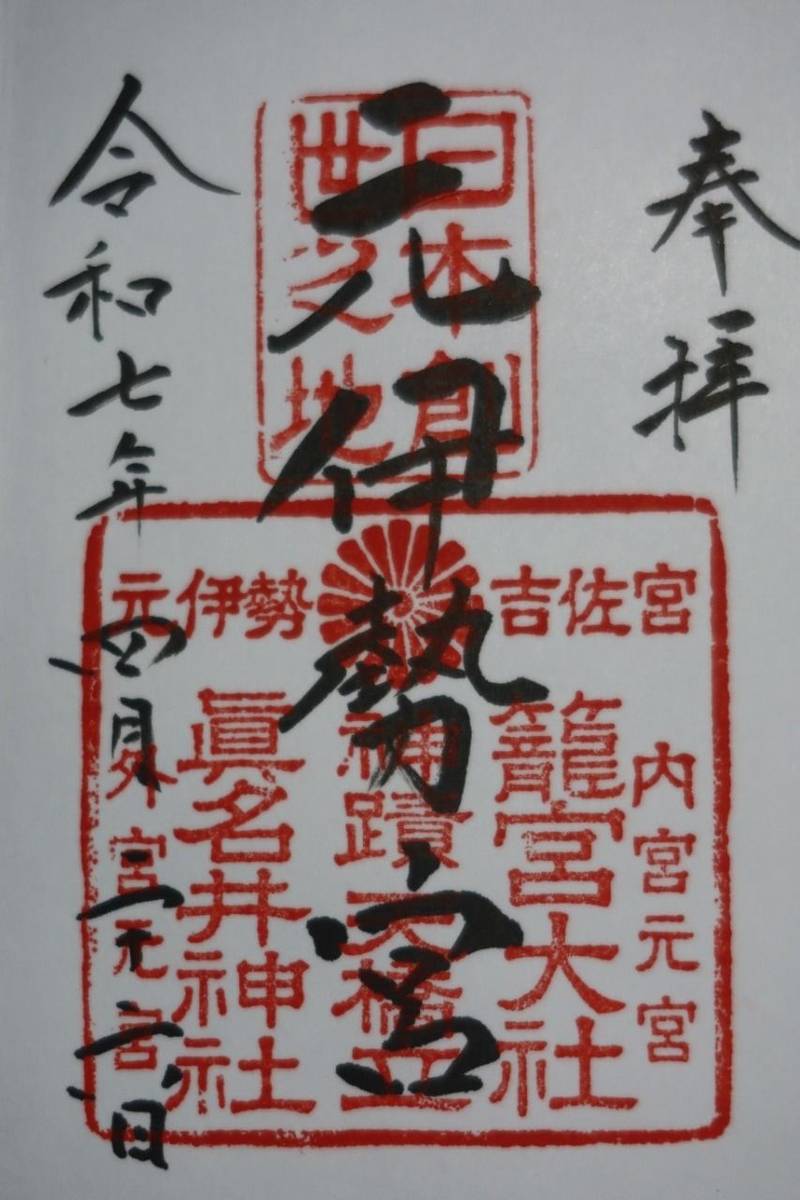 奉拝
元伊勢宮
令和七年四月二十
日本創
世之地
元伊勢 吉佐宮
内宮元宮
籠宮大社
神蹟天橋立
眞名井神社
外宮元宮